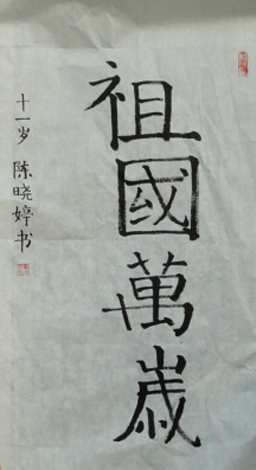 祖國萬歲
十一岁 陈晓婷书